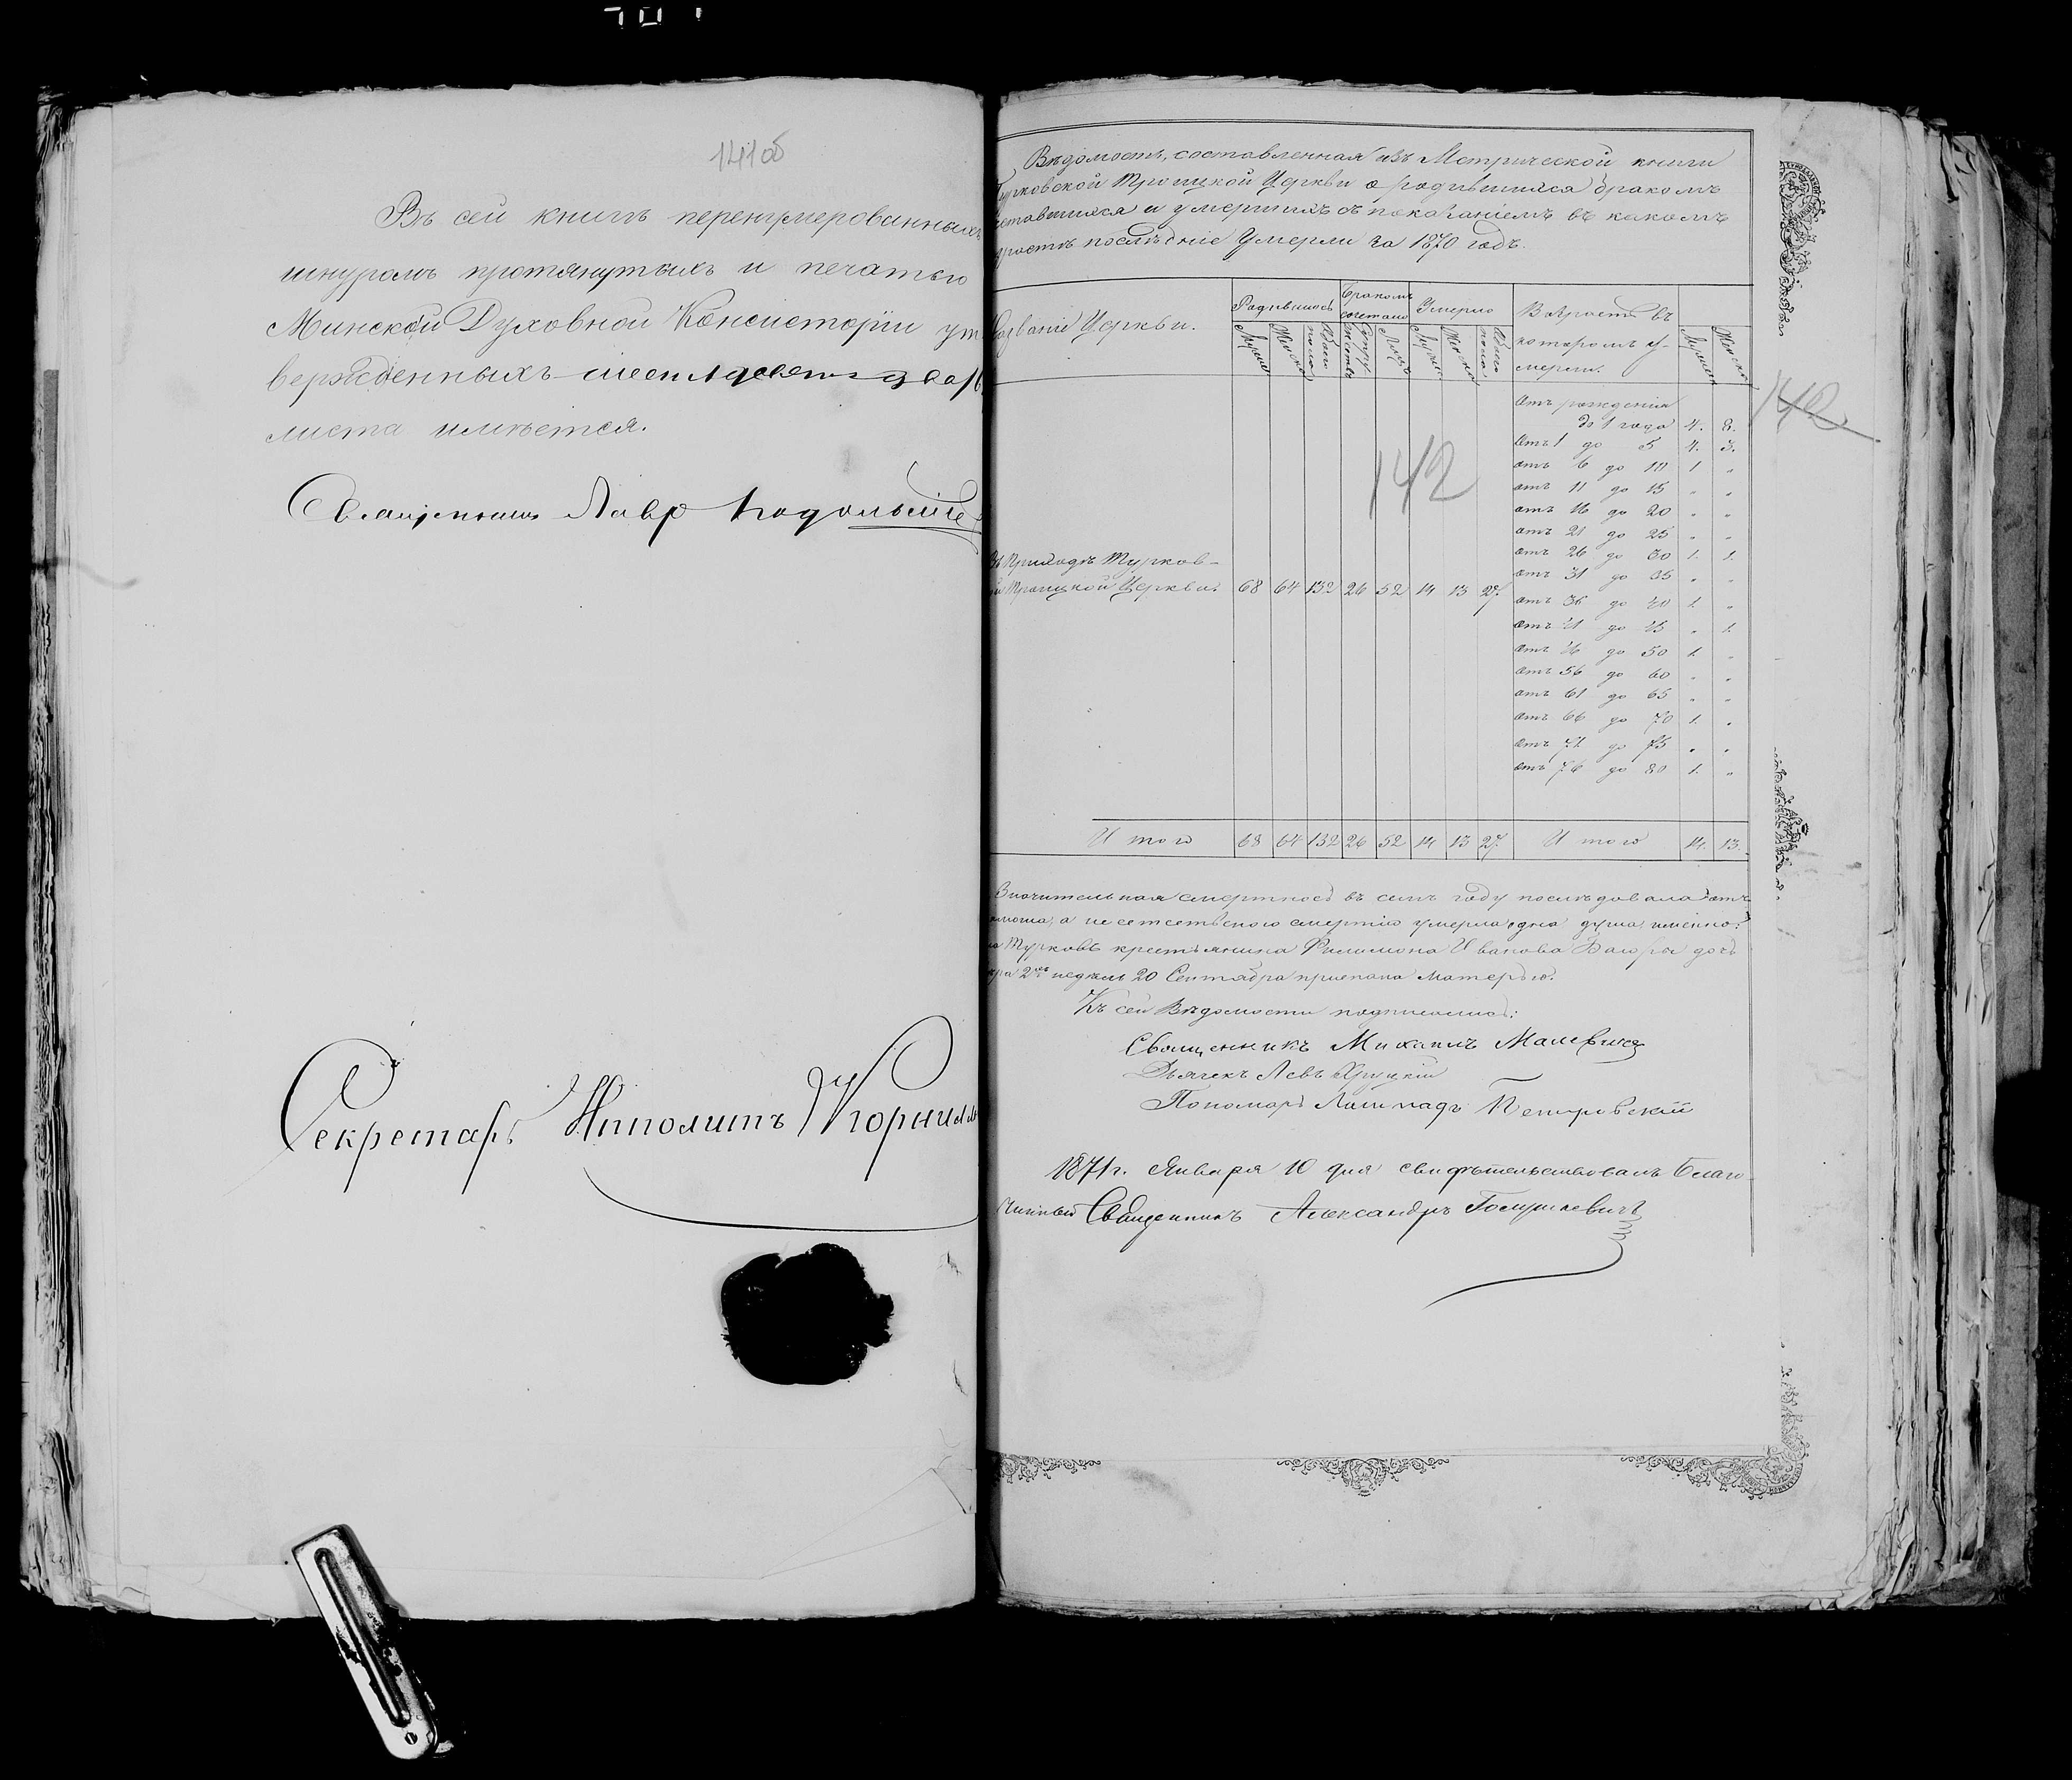 141об
Въ сей книгѣ перенумерованныхъ
шнуромъ протянутыхъ и печатью
Минской Духовной Консисторіи ут
вержденныхъ
листа имѣется.
Священникъ Лавръ Подольскій
Секретарь Ипполитъ Корнил
Вѣдомость, составленная изъ Метрической книги
Турковской Троицкой Церкви о родившихся бракомъ
сочетавшихся и умершихъ съ показаніемъ въ какомъ
возрастѣ послѣдніе умерли за 1870 годъ.
Названіе Церкви.
Родившихся
Бракомъ сочетано
Умерло
Возрастъ въ которомъ умерли.
Мужеска
Женска
Обоего пола
Супружествъ
Лицъ
Мужеска
Женска
Обоего пола
Мужеска
Женска
142
142
Отъ рожденія
до 1 года 4. 8.
Отъ 1 до 5 4. 3.
отъ 6 до 10 1 "
отъ 11 до 15 " "
отъ 16 до 20 " "
отъ 21 до 25 " "
отъ 26 до 30 1. 1.
отъ 31 до 35 " "
отъ 36 до 40 1. "
отъ 41 до 45 " 1.
отъ 46 до 50 1. "
отъ 56 до 60 " "
отъ 61 до 65 " "
отъ 66 до 70 1. "
отъ 71 до 75 " "
отъ 76 до 80 1. "
Въ Приходѣ Турков-
ой Троицкой Церкви. 68 64 132 26 52 14 13 27.
Итого 68 64 132 26 52 14 13 27. Итого 14. 13.
Значительная смертность въ семъ году послѣдовала отъ
а не естественою смертію умерла одна душа, именно:
Турковъ крестьянина Филимона Иванова дочь
2хъ недѣль 20 Сентября приспана матерью.
Къ сей Вѣдомости подписались:
Священникъ Михаилъ Малевичъ
Дьячекъ Левъ Хруцкій
Пономарь Петровскій
1871 г. Января 10 дня свидѣтельствовалъ Благо-
чинный Священникъ Александръ